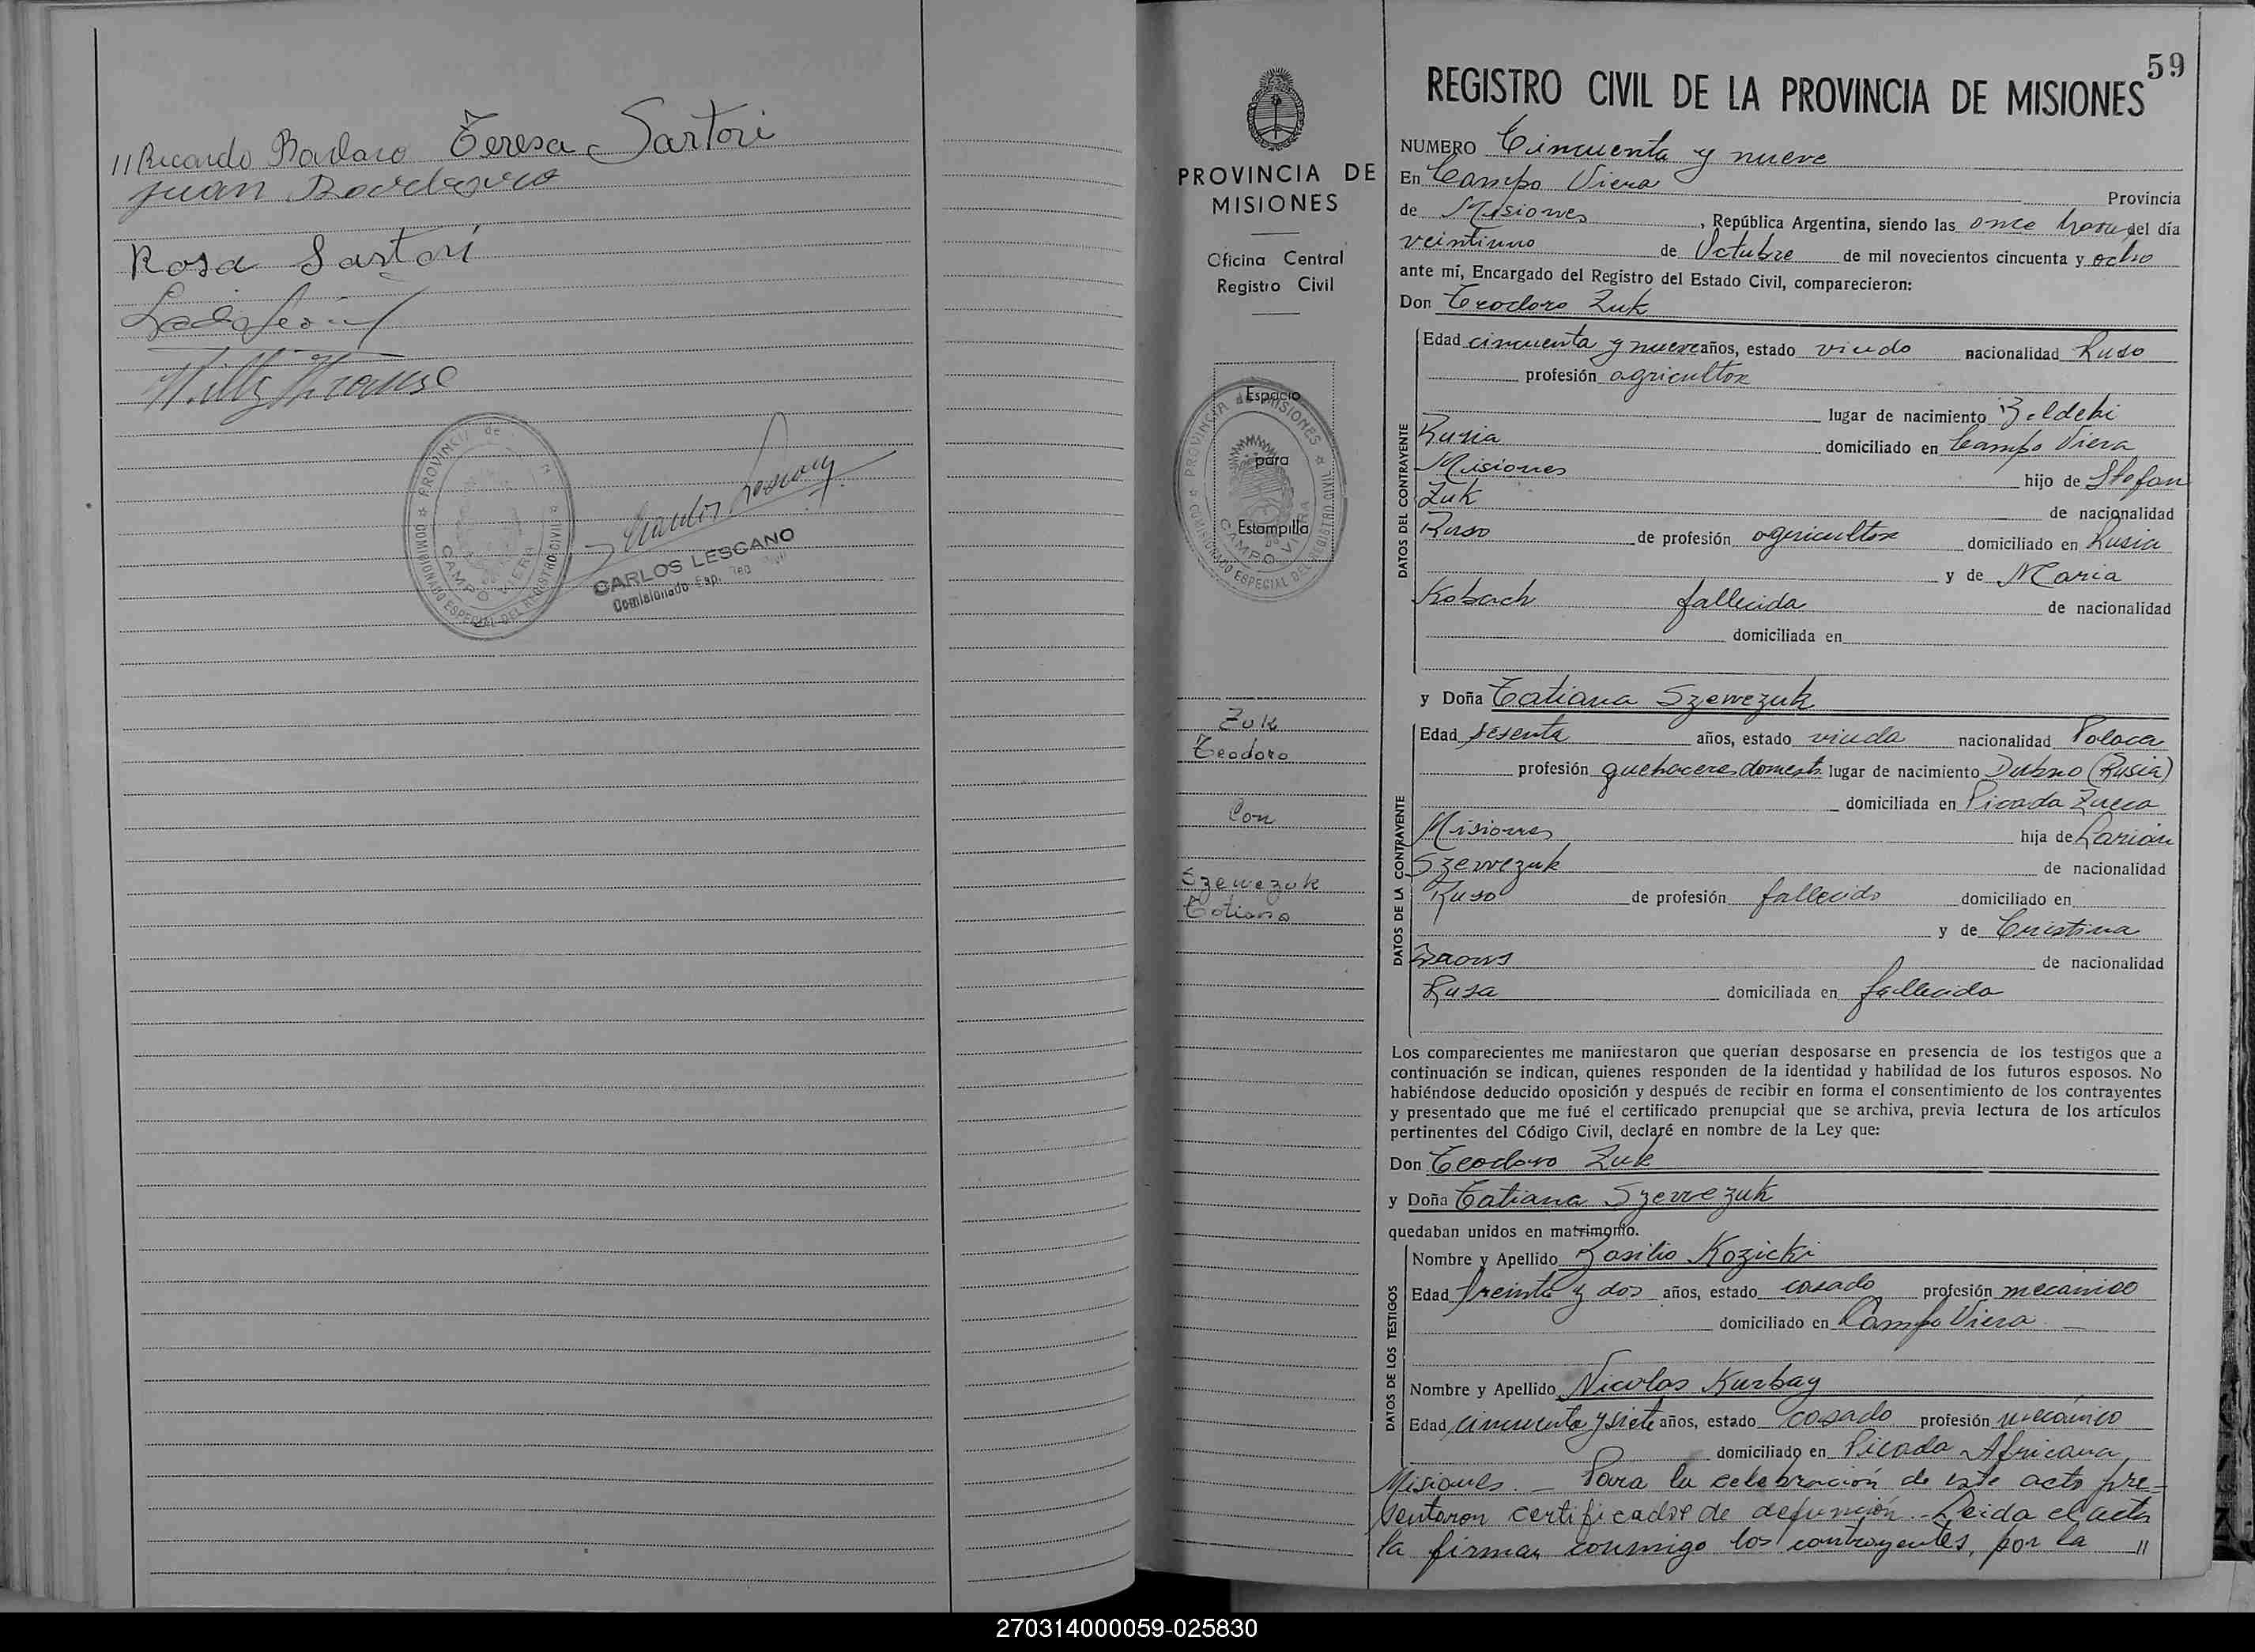 // Ricardo Bárbaro Teresa Sartori
Juan
Rosa Sartori
Willy Krause
PROVINCIA de
COMISIONADO ESPECIAL DEL REGISTRO CIVIL
CAMPO VIERA
CARLOS LESCANO
Comisionado Esp. Reg.
59
REGISTRO CIVIL DE LA PROVINCIA DE MISIONES
PROVINCIA DE
MISIONES
Oficina Central
Registro Civil
Espacio
para
Estampilla
PROVINCIA de MISIONES
COMISIONADO ESPECIAL DEL REGISTRO CIVIL
CAMPO VIERA
Zuk
Teodoro
Con
Szewezuk
Tatiana
NUMERO Cincuenta y nueve
En Campo Viera Provincia
de Misiones, República Argentina, siendo las once horas del día
veintiuno de Octubre de mil novecientos cincuenta y ocho
ante mí, Encargado del Registro del Estado Civil, comparecieron:
Don Teodoro Zuk
DATOS DEL CONTRAYENTE
Edad cincuenta y nueve años, estado viudo nacionalidad Ruso
profesión agricultor
lugar de nacimiento Beldeki
Rusia domiciliado en Campo Viera
Misiones hijo de Stefan
Zuk de nacionalidad
Ruso de profesión agricultor domiciliado en Rusia
y de Maria
Kobach fallecida de nacionalidad
domiciliada en
y Doña Tatiana Szewezuk
DATOS DE LA CONTRAYENTE
Edad sesenta años, estado viuda nacionalidad Polaca
profesión quehaceres domests. lugar de nacimiento Dubno (Rusia)
domiciliada en Picada Zueca
Misiones hija de Larión
Szewezuk de nacionalidad
Ruso de profesión fallecido domiciliado en
y de Cristina
de nacionalidad
Rusa domiciliada en fallecida
Los comparecientes me manifestaron que querían desposarse en presencia de los testigos que a
continuación se indican, quienes responden de la identidad y habilidad de los futuros esposos. No
habiéndose deducido oposición y después de recibir en forma el consentimiento de los contrayentes
y presentado que me fué el certificado prenupcial que se archiva, previa lectura de los artículos
pertinentes del Código Civil, declaré en nombre de la Ley que:
Don Teodoro Zuk
y Doña Tatiana Szewezuk
quedaban unidos en matrimonio.
DATOS DE LOS TESTIGOS
Nombre y Apellido Basilio Kozicki
Edad treinta y dos años, estado casado profesión mecanico
domiciliado en Campo Viera
Nombre y Apellido Nicolas Kurbay
Edad cincuenta y siete años, estado casado profesión mecánico
domiciliado en Picada Africana
Misiones. - Para la celebración de este acto pre-
sentaron certificados de defunción. - Leida el acta
la firman conmigo los contrayentes, por la //
270314000059-025830